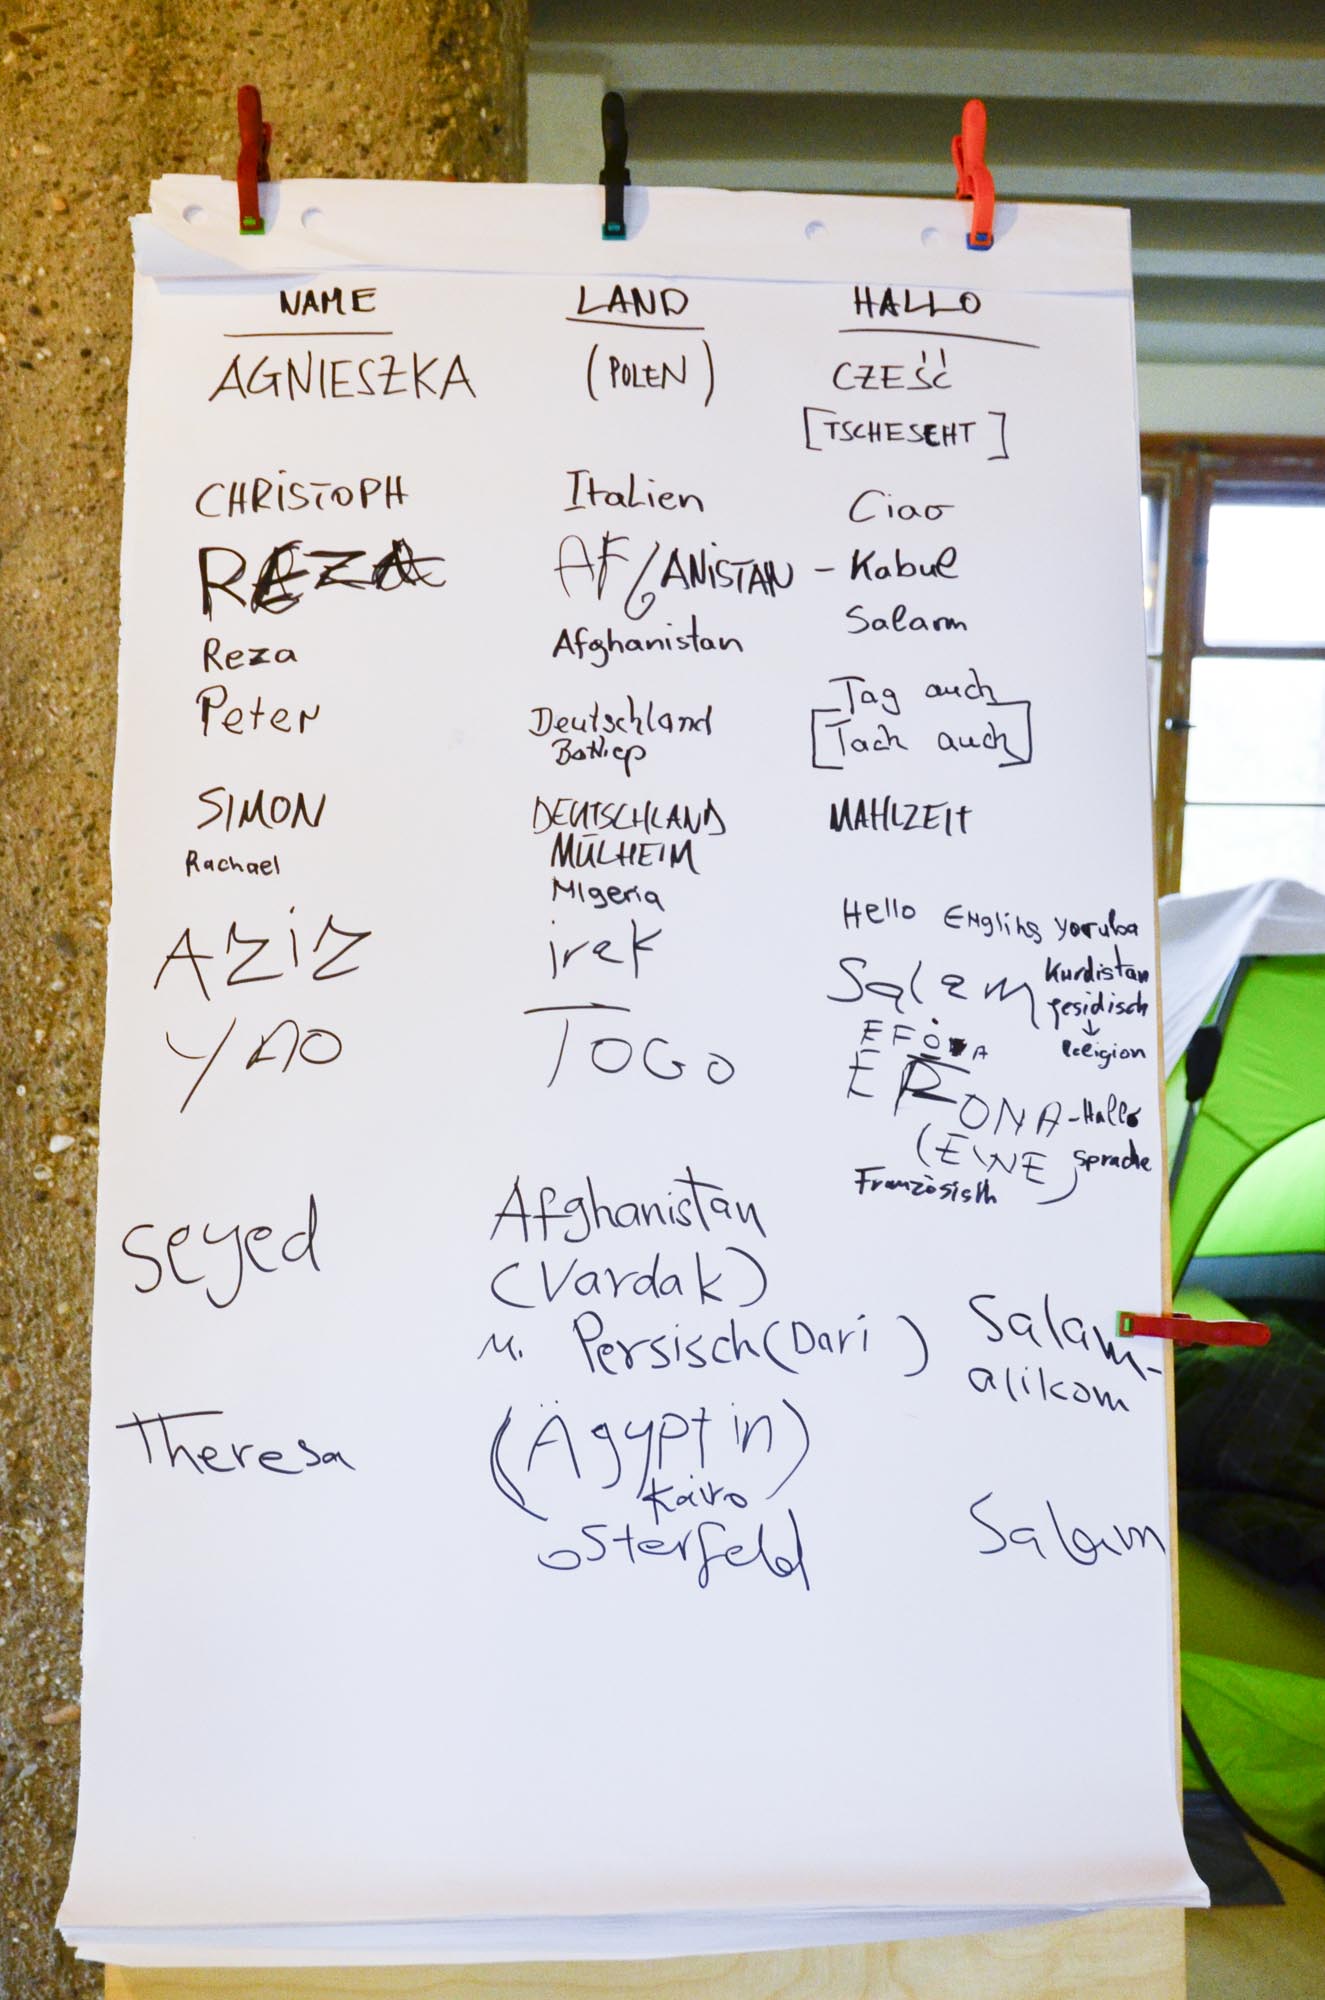 NAME LAND HALLO
AGNIESZKA (POLEN) CZEŚĆ
[TSCHESEHT]
CHRISTOPH Italien Ciao
REZA AFGANISTAN - Kabul
Reza Afghanistan Salam
Peter Deutschland Tag auch
[Tach auch]
SIMON DEUTSCHLAND MAHLZEIT
MÜLHEIM
Rachael NIgeria Hello ENGlihs yoruba
AZiZ irak Salam Kurdistan
yesidisch
Religion
YAO TOGO EFONA
EFONA - Hallo
(EWE) sprache
Französisch
Seyed Afghanistan
(Vardak)
M. Persisch (Dari) Salam-
alikom
Theresa (Ägypt in)
Kairo
Osterfeld Salam